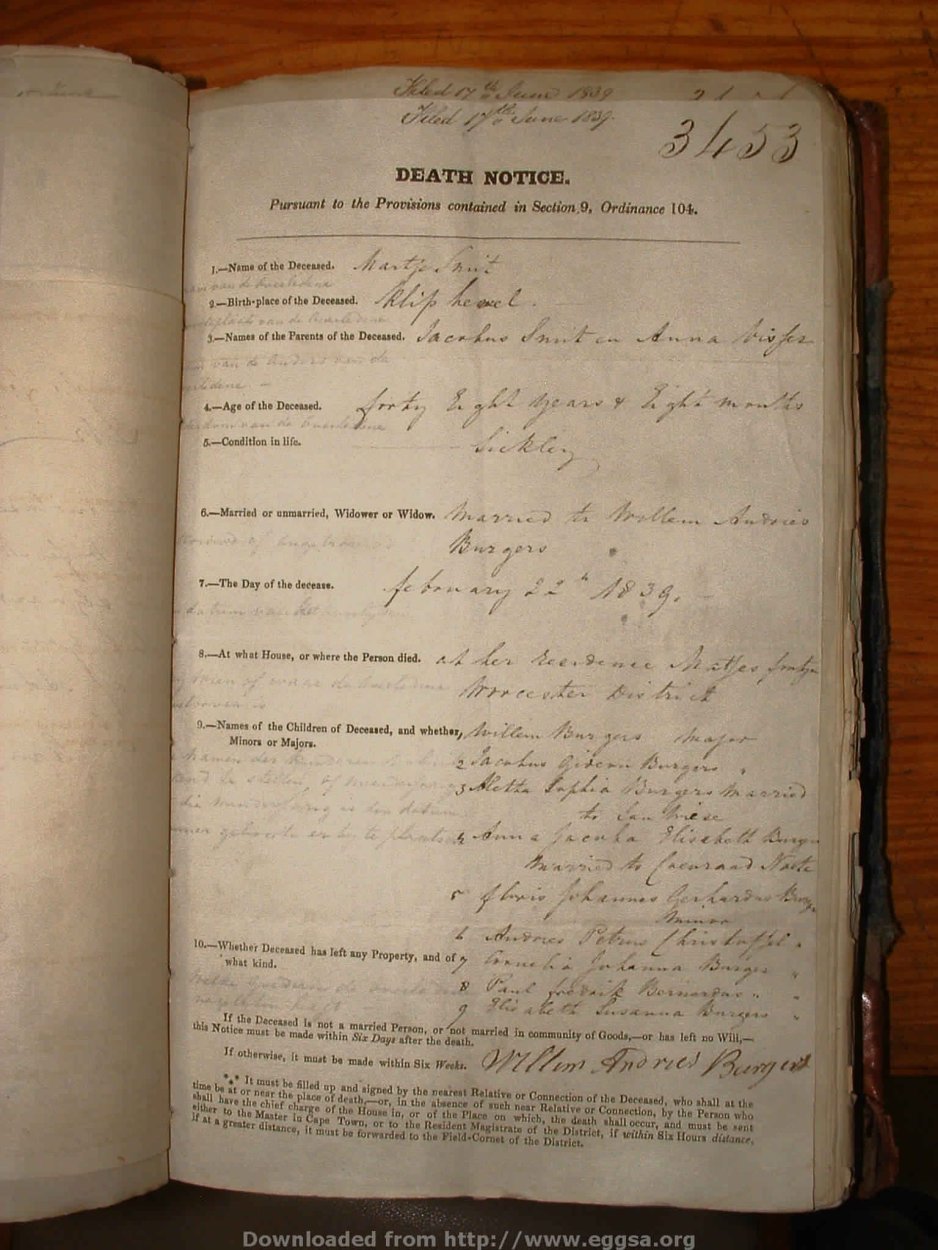 Filed 17th June 1839
Filed 17th June 1839.
3453
DEATH NOTICE.
Pursuant to the Provisions contained in Section 9, Ordinance 104.
1.—Name of the Deceased. Martje Smit
2.—Birth-place of the Deceased. Klip hewel
3.—Names of the Parents of the Deceased. Jacobus Smit en Anna Visser
4.—Age of the Deceased. forty Eight years & Eight months
5.—Condition in life. Sickley
6.—Married or unmarried, Widower or Widow. Married to Willem Andries
Burgers
7.—The Day of the decease. february 22 1839.
8.—At what House, or where the Person died. at her residence Matjes
Worcester District
9.—Names of the Children of Deceased, and whether Willem Burgers Major
Minors or Majors.
2 Jacobus Gideon Burgers "
3 Aletta Sophia Burgers Married
to Jan Wiese
4 Anna Jacoba Elisabeth
Married to Coenraad Nolte
5 floris Johannes Gerhardus
Minor
6 Andries Petrus Christoffel "
10.—Whether Deceased has left any Property, and of 7 Cornelia Johanna Burger "
what kind.
8 Paul fredrik Bernardus " "
9 Elisabeth Susanna Burgers "
If the Deceased is not a married Person, or not married in community of Goods,—or has left no Will,—
this Notice must be made within Six Days after the death.
If otherwise, it must be made within Six Weeks. Willem Andries Burgers
*** It must be filled up and signed by the nearest Relative or Connection of the Deceased, who shall at the
time be at or near the place of death,—or, in the absence of such near Relative or Connection, by the Person who
shall have the chief charge of the House in, or of the Place on which, the death shall occur, and must be sent
either to the Master in Cape Town, or to the Resident Magistrate of the District, if within Six Hours distance,
if at a greater distance, it must be forwarded to the Field-Cornet of the District.
Downloaded from http://www.eggsa.org